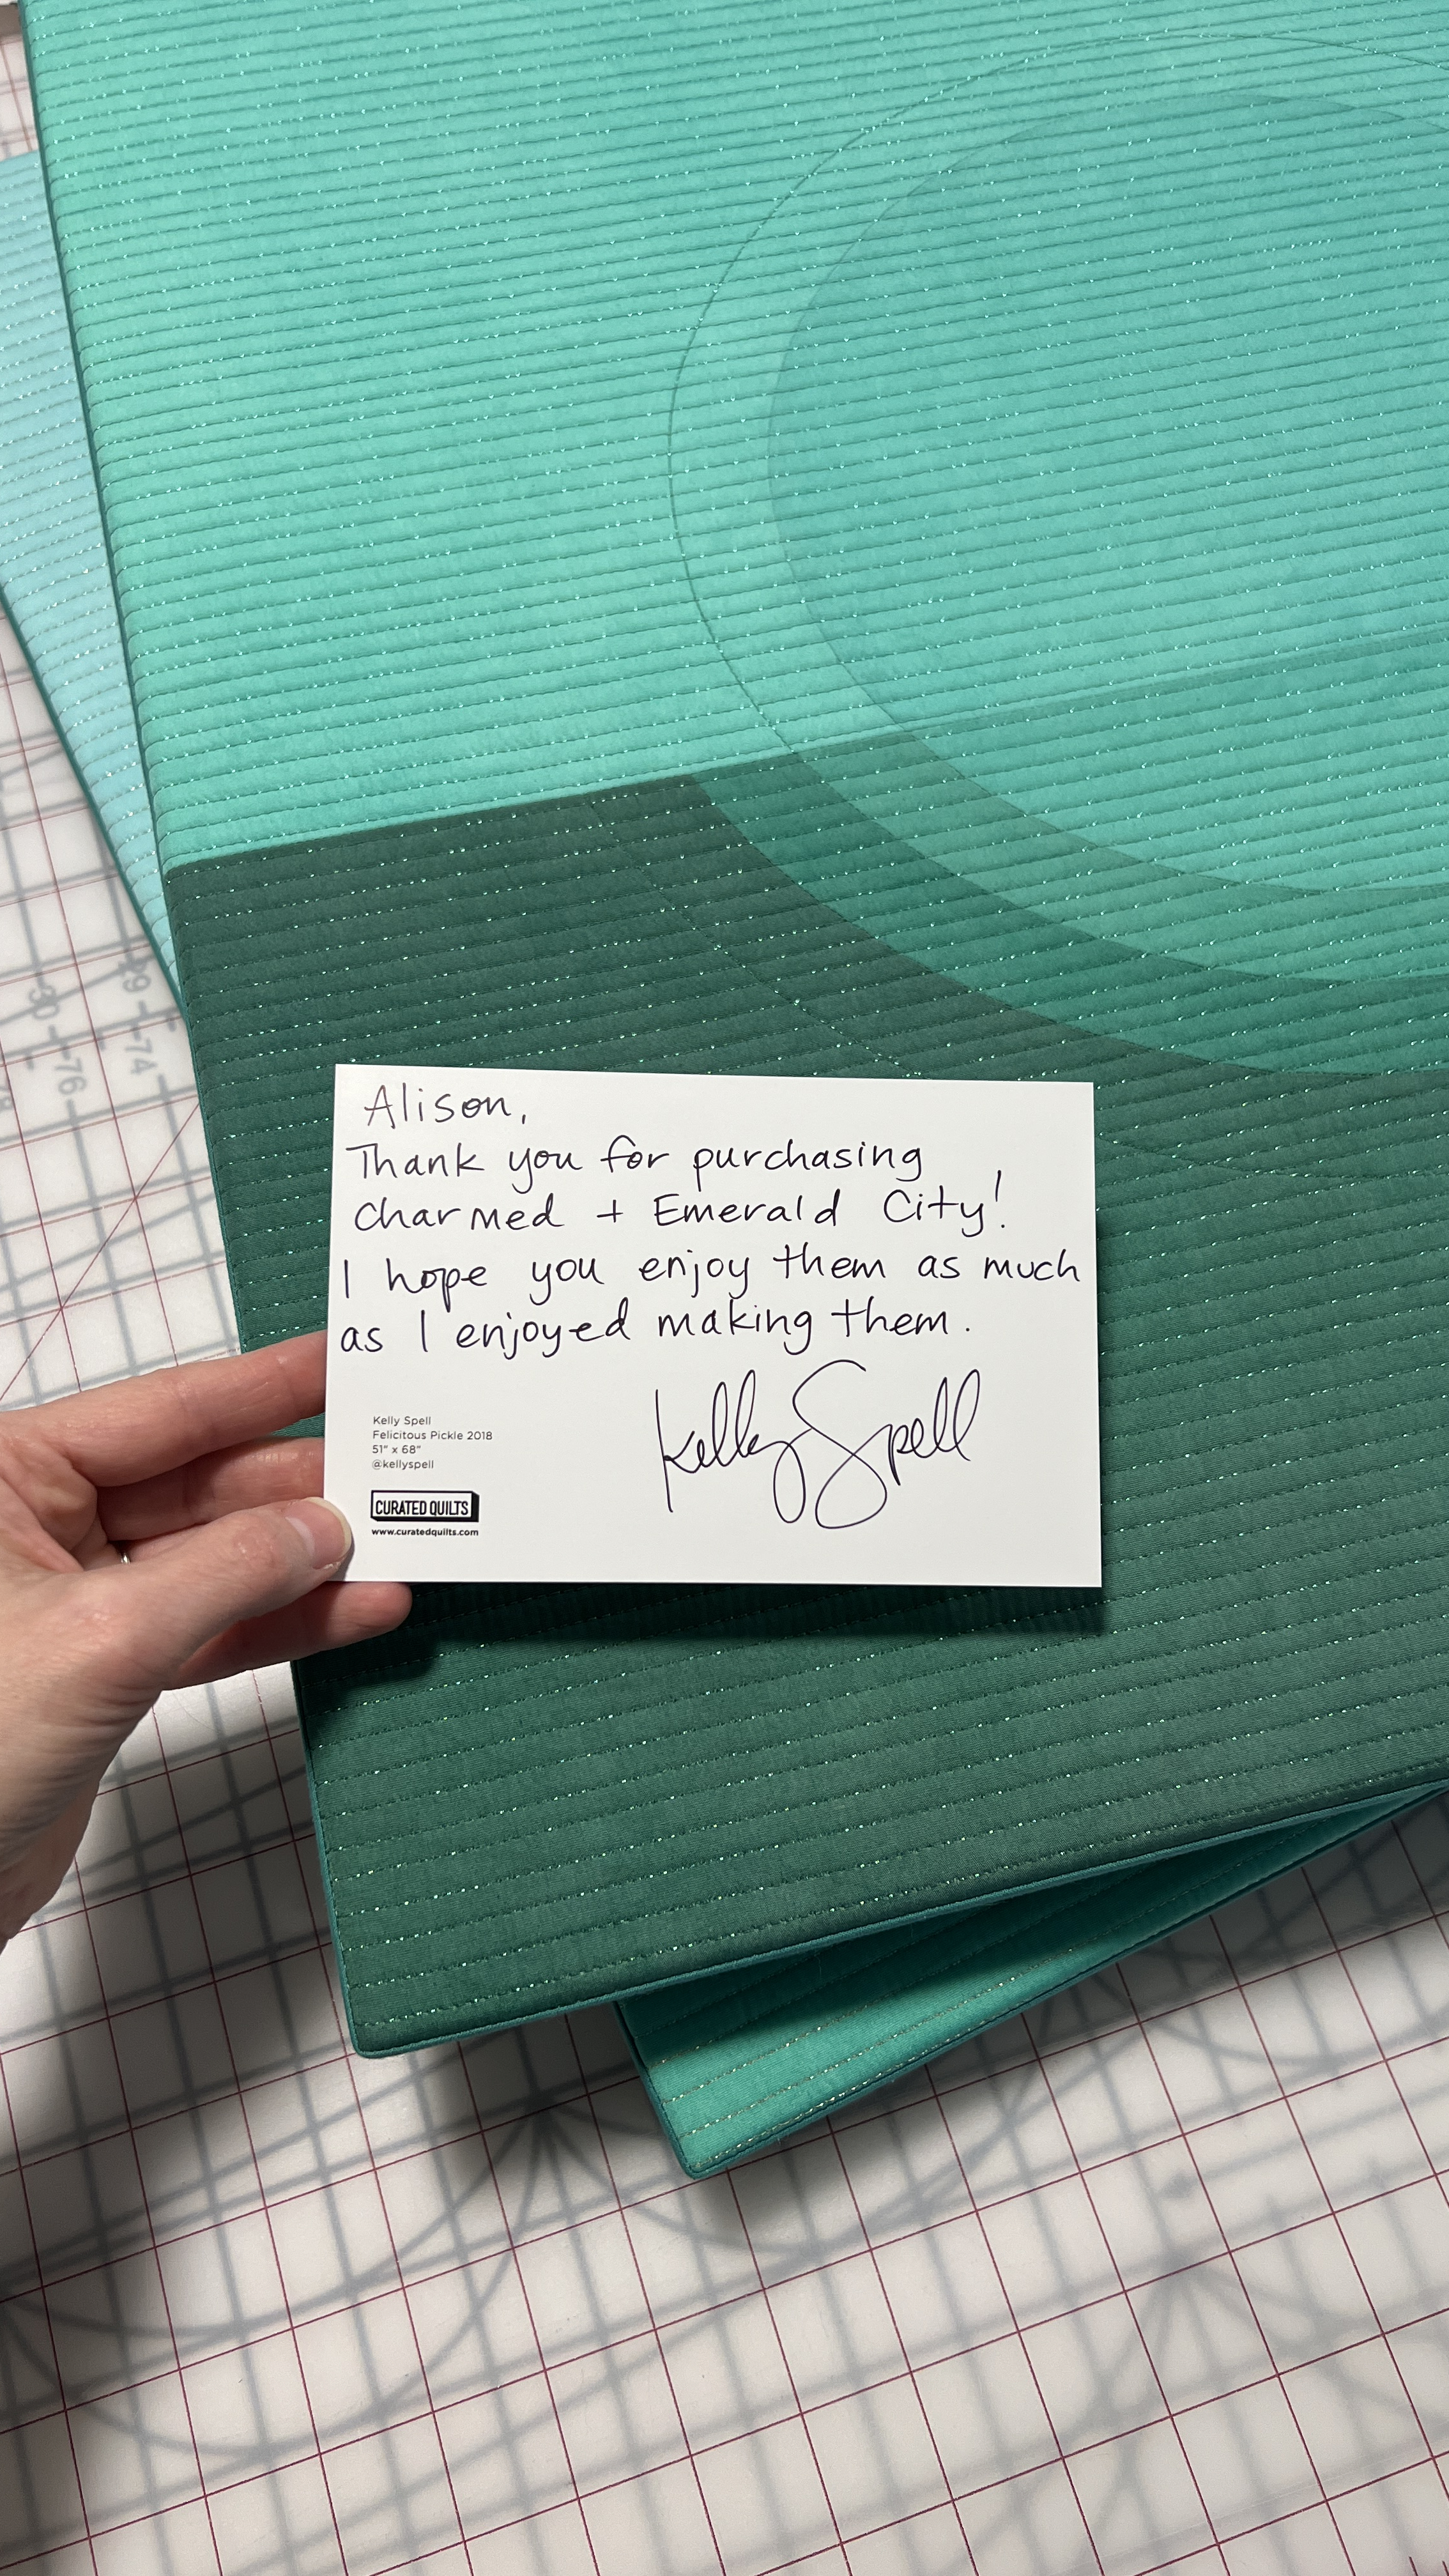 Alison,
Thank you for purchasing
Charmed + Emerald City!
I hope you enjoy them as much
as I enjoyed making them.
Kelly Spell
Kelly Spell
Felicitous Pickle 2018
51" x 68"
@kellyspell
CURATED QUILTS
www.curatedquilts.com
76
74